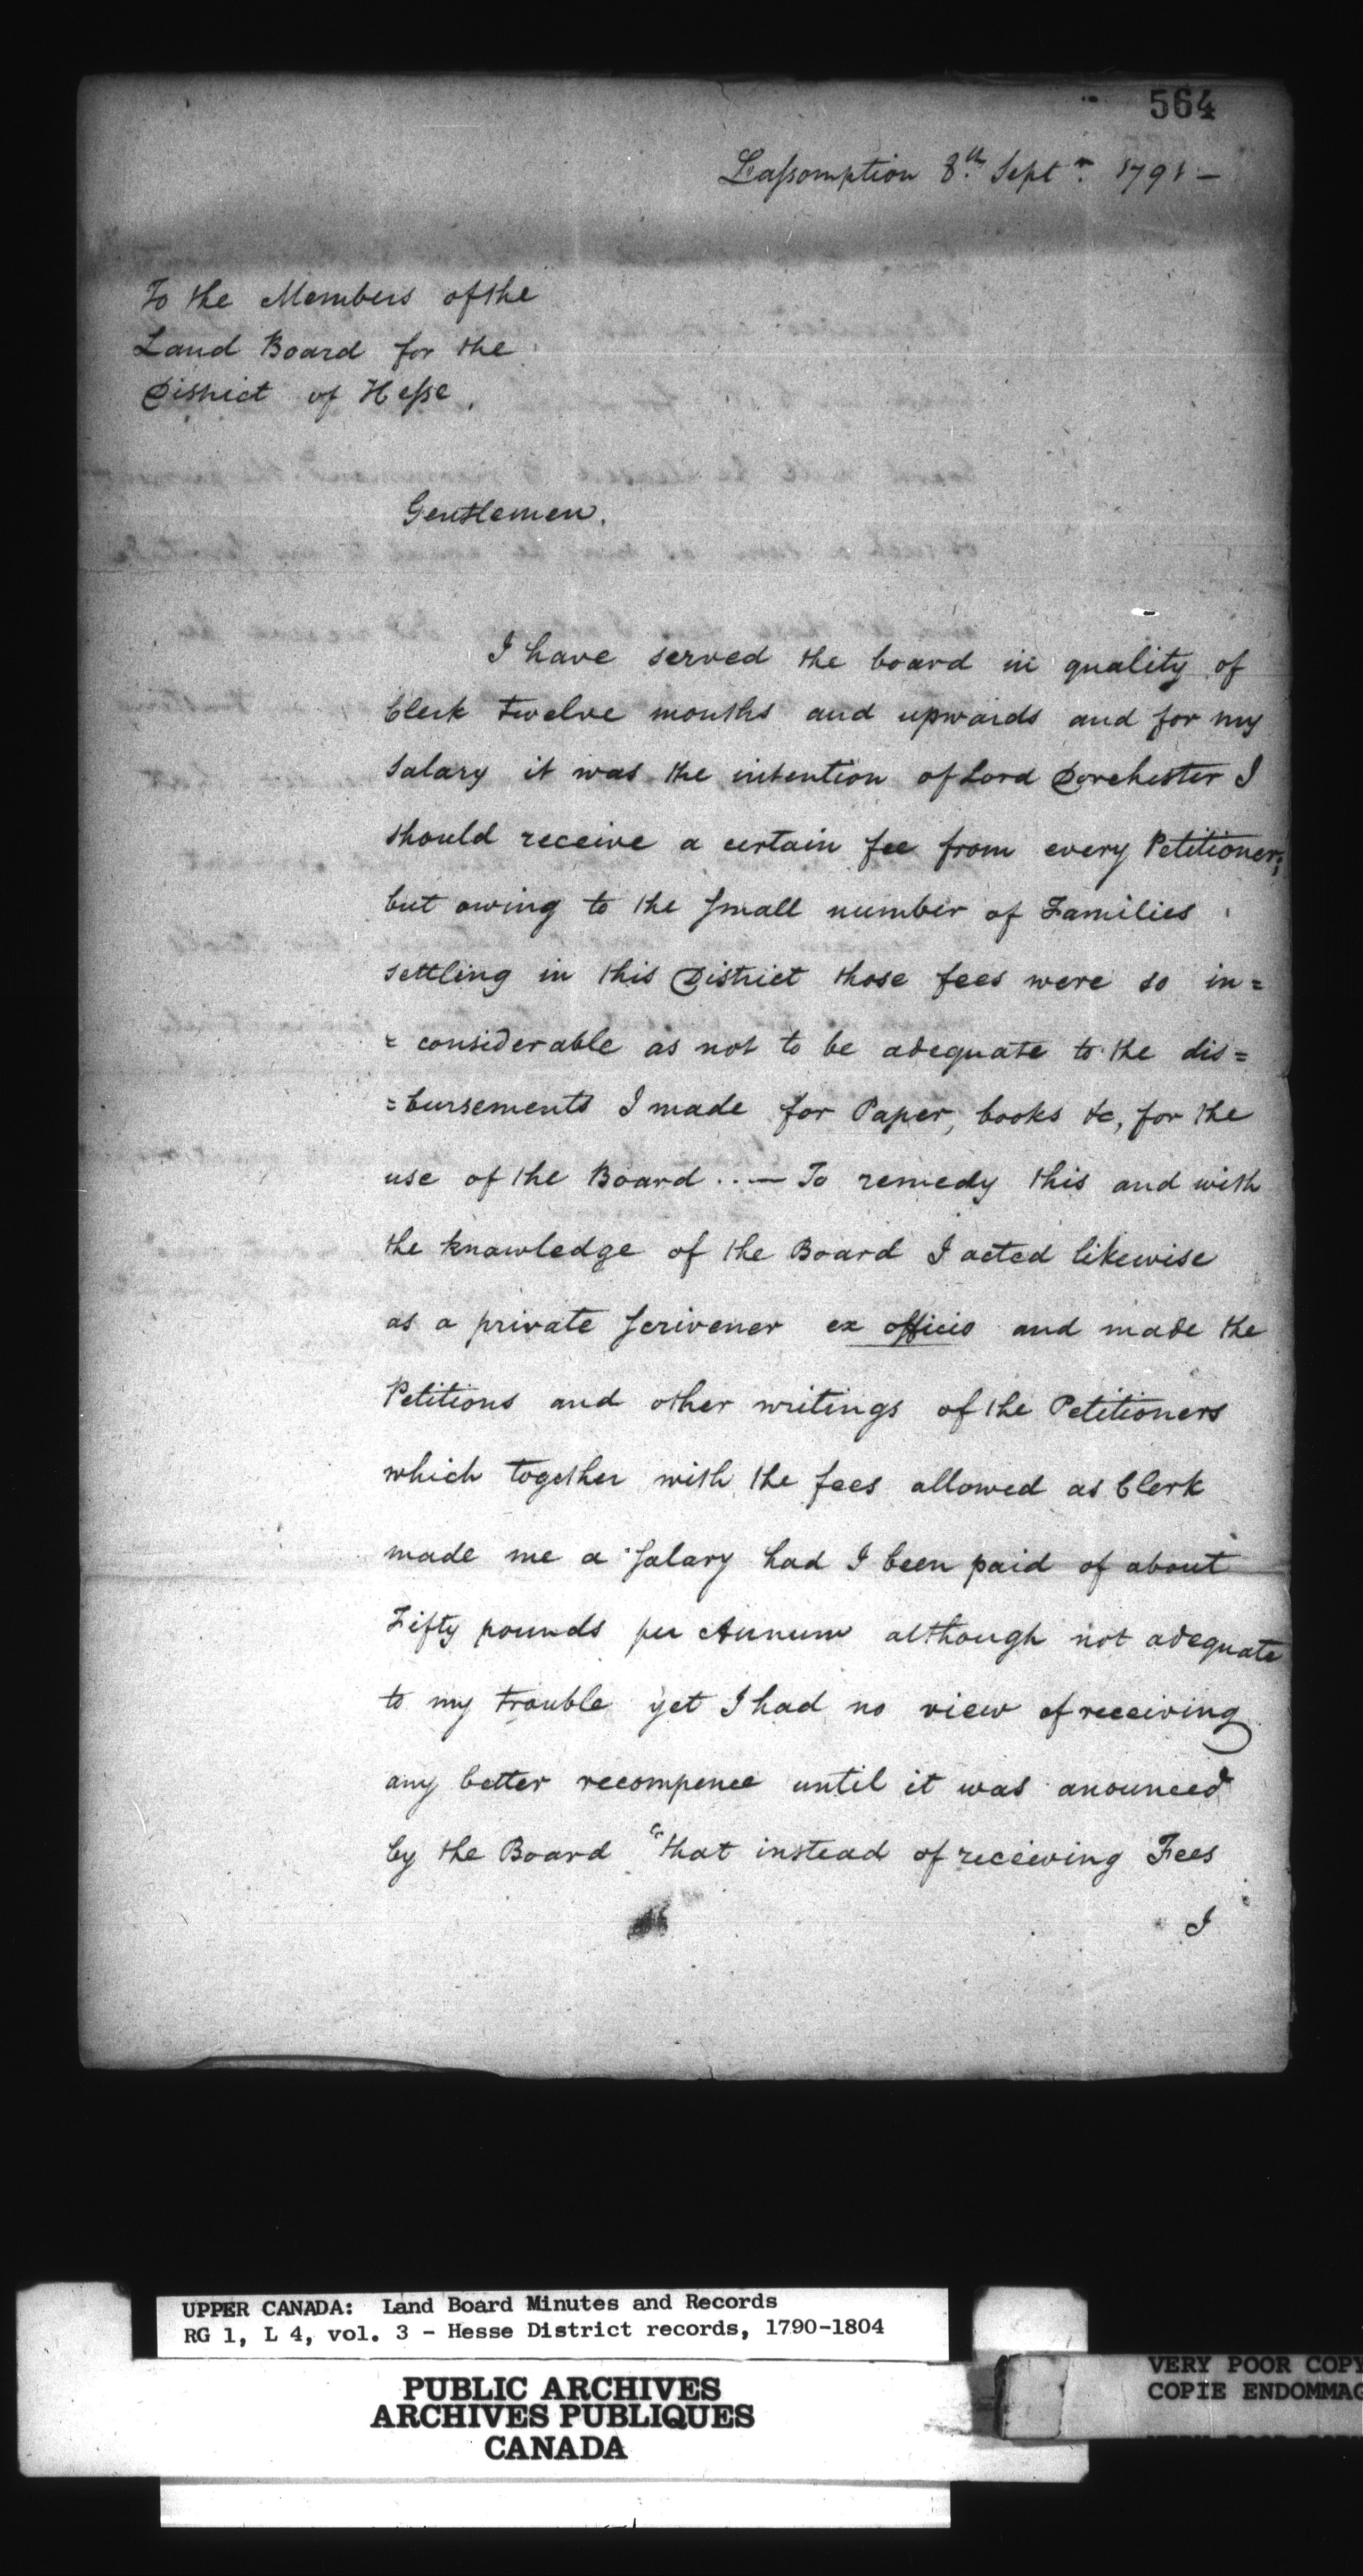 564
Lassomption 8.th Septr. 1791 —
To the Members of the
Land Board for the
District of Hesse.
Gentlemen.
I have served the board in quality of
Clerk twelve months and upwards and for my
salary it was the intention of Lord Dorchester I
should receive a certain fee from every Petitioner;
but owing to the small number of Families
settling in this District those fees were so in=
= considerable as not to be adequate to the dis=
=bursements I made for Paper, books &c, for the
use of the Board .. — To remedy this and with
the knowledge of the Board I acted likewise
as a private scrivener ex officio and made the
Petitions and other writings of the Petitioners
which together with the fees allowed as Clerk
made me a salary had I been paid of about
Fifty pounds per Annum although not adequate
to my trouble yet I had no view of receiving
any better recompence until it was anounced
by the Board "that instead of receiving Fees
I
UPPER CANADA: Land Board Minutes and Records
RG 1, L 4, vol. 3 - Hesse District records, 1790-1804
PUBLIC ARCHIVES
ARCHIVES PUBLIQUES
CANADA
VERY POOR COPY
COPIE ENDOMMAG